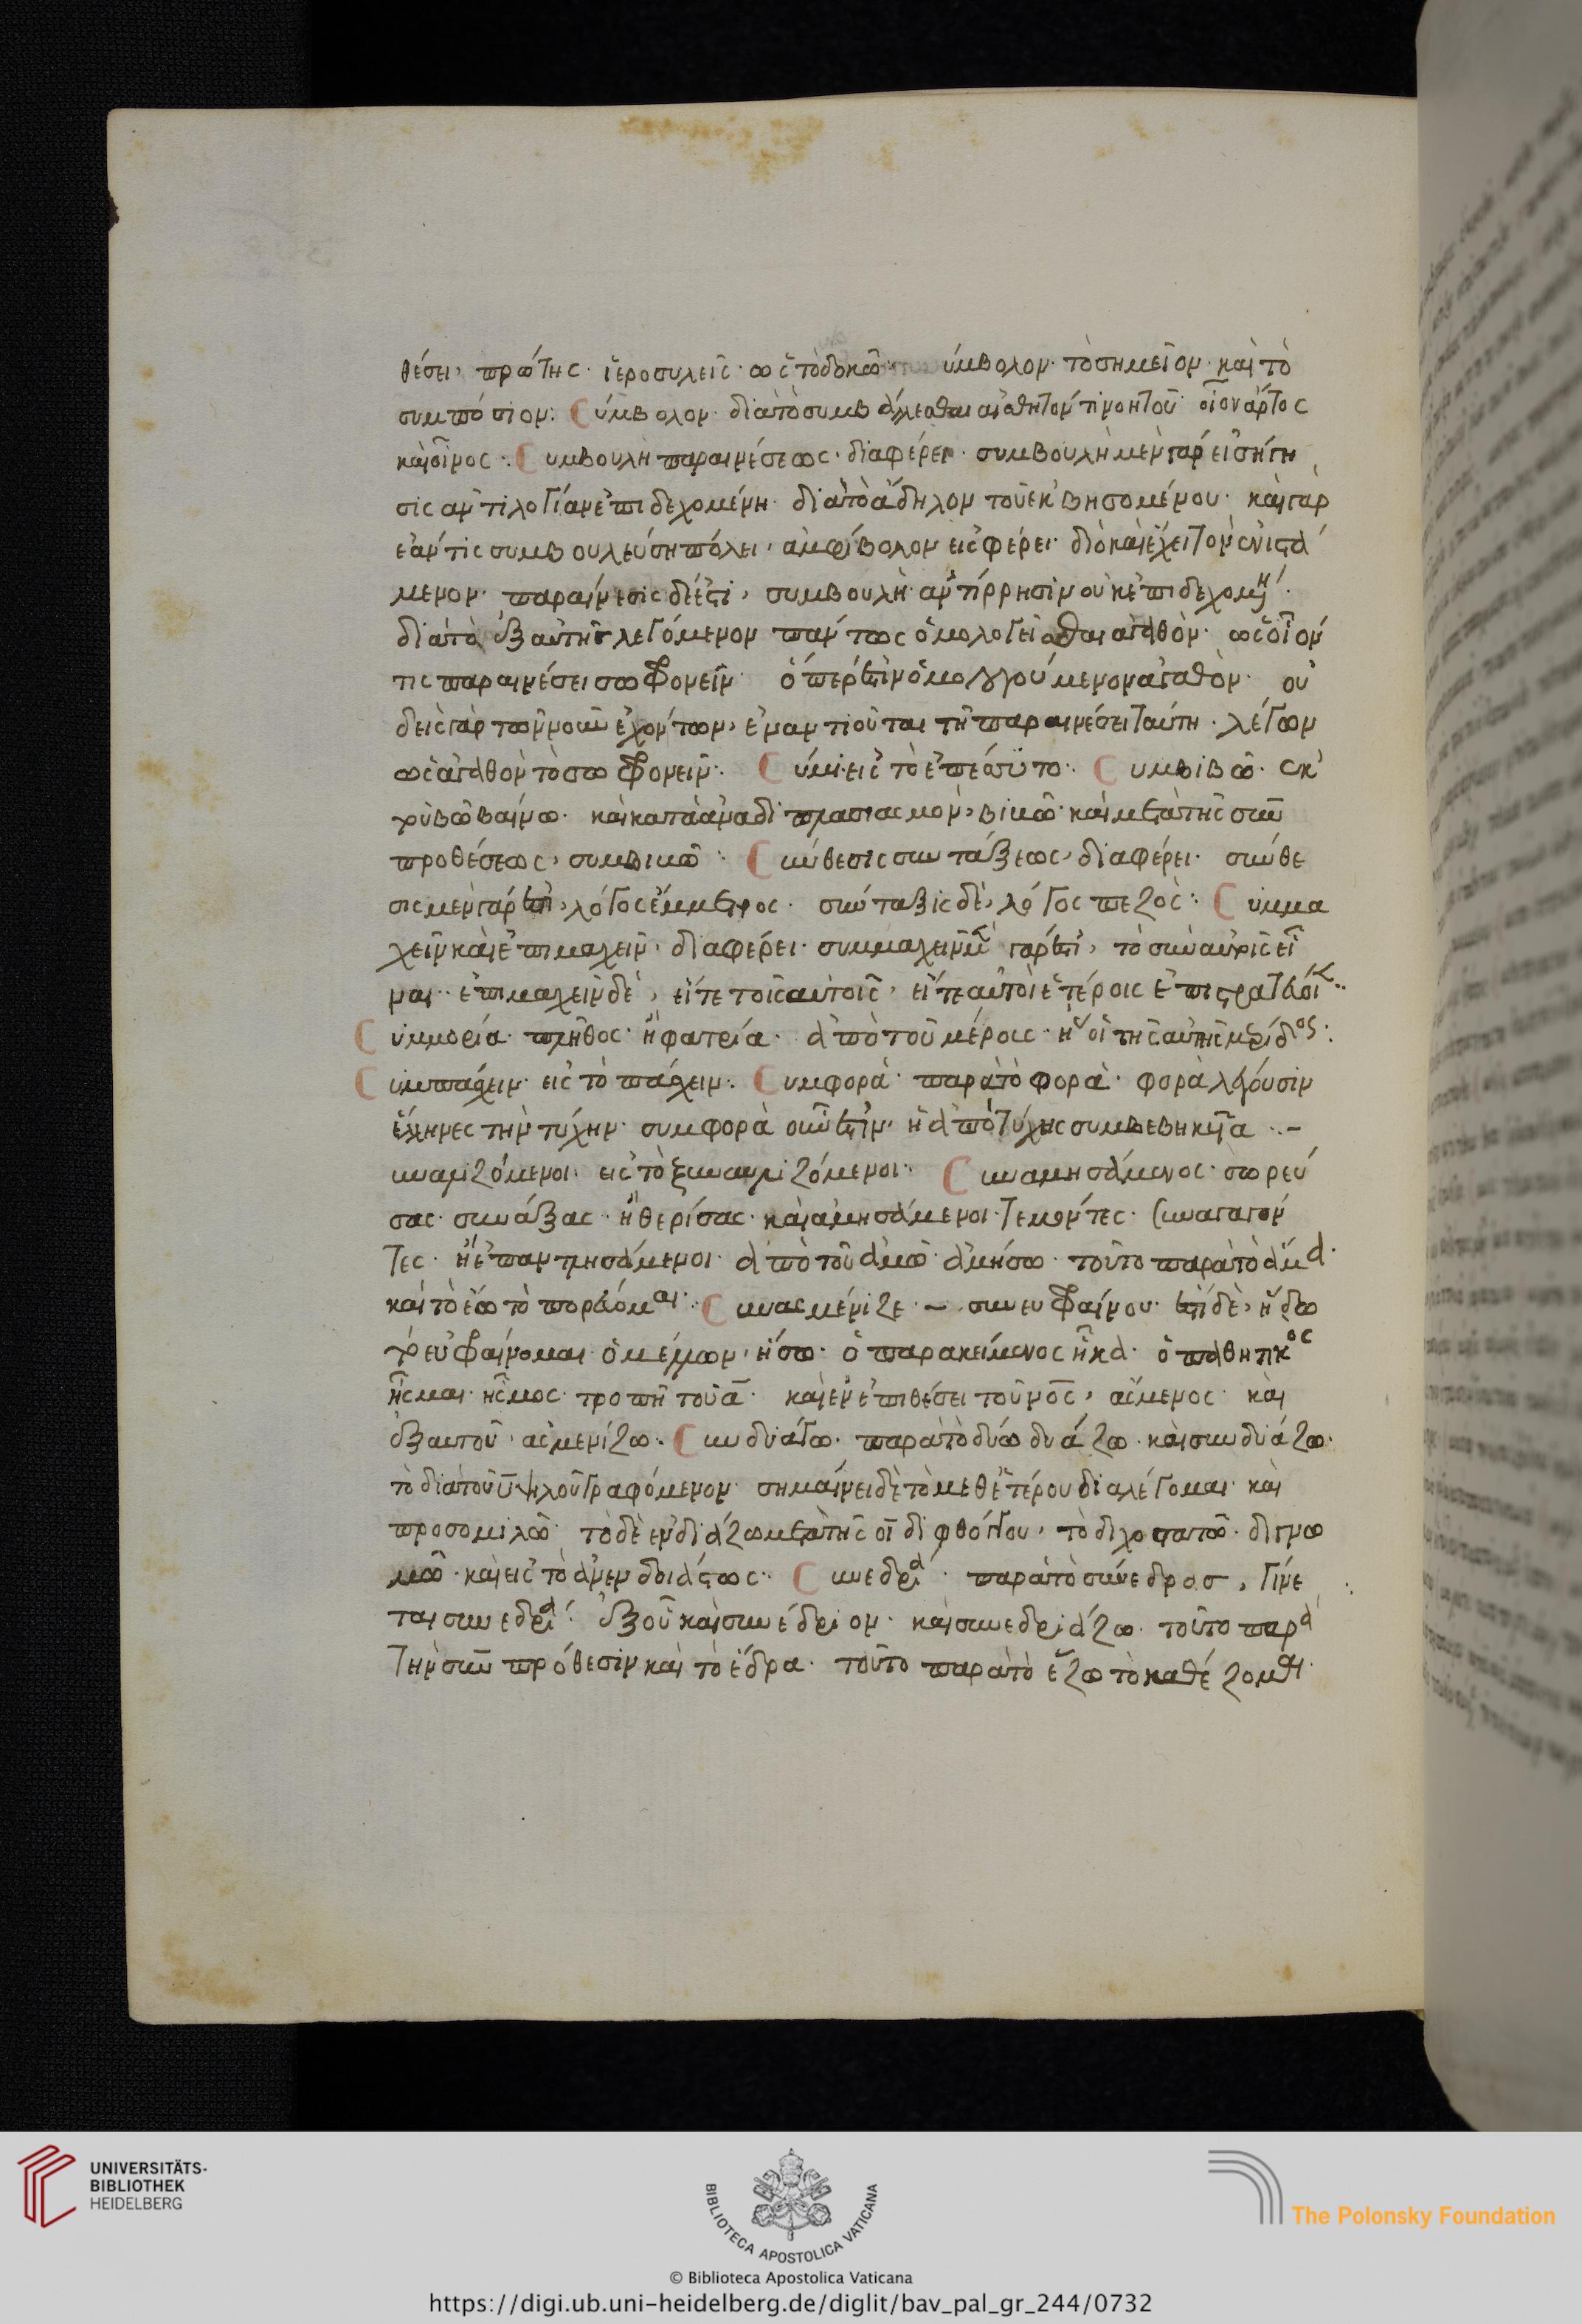 θέσει· πρώτης· ἱεροσυλεῖς· ὡς τὸ δοκῶ· ύμβολον· τὸ σημεῖον· καὶ τὸ
συμπόσιον: Cύμβολον· διὰ τὸ συμβάλλεσθαι αἰσθητόν τι νοητοῦ· οἷον ἄρτος
καὶ οἶνος· Cυμβουλὴ παραινέσεως· διαφέρει· συμβουλὴ μὲν γάρ εἰσήγη
σις ἀντιλογίαν ἐπιδεχομένη· διὰ τὸ ἄδηλον τοῦ ἐκβησομένου· καὶ γὰρ
ἐάν τις συμβουλεύση πόλει, ἀμφίβολον εἰσφέρει· διὸ καὶ ἔχει τὸν ἐνιστά
μενον· παραίνεσις δέ ἐστι, συμβουλὴ ἀντίρρησιν οὐκ ἐπιδεχομένη·
διὰ τὸ ἐξ αὐτῆς λεγόμενον πάντως ὁμολογεῖσθαι ἀγαθόν· ὡς οἷον
τις παραινέσει σωφρονεῖν· ὅπερ ἐστὶν ὁμολογούμενον ἀγαθόν· οὐ
δεὶς γὰρ τῶν νοῦν ἐχόντων, ἐναντιοῦται τῆ παραινέσει ταύτη· λέγων
ὡς ἀγαθὸν τὸ σωφρονεῖν· Cύνι· εἰς τὸ ἐπέσσυτο· Cυμβιβῶ· ἐκ
τοῦ βῶ βαίνω· καὶ κατὰ ἀναδιπλασιασμόν, βιβῶ· καὶ μετὰ τῆς σὺν
προθέσεως, συμβιβῶ· Cύνθεσις συντάξεως, διαφέρει· σύνθε
σις μὲν γάρ ἐστι, λόγος ἔμμετρος· σύνταξις δὲ, λόγος πεζός· Cυμμα
χεῖν καὶ ἐπιμαχεῖν, διαφέρει· συμμαχεῖν μὲν γάρ ἐστι, τὸ σὺν αὐτοῖς εἶ
ναι· ἐπιμαχεῖν δὲ, εἴτε τοῖς αὐτοῖς, εἴτε αὐτοὶ ἑτέροις ἐπιστρατευόντες·
Cυμμορία· πλῆθος· ἢ φατρία· ἀπὸ τοῦ μέρους· ἢ οἱ τῆς αὐτῆς μερίδος:
Cυμπάσχειν· εἰς τὸ πάσχειν· Cυμφορά· παρὰ τὸ φορά· φορὰ λέγουσιν
ἕλληνες τὴν τύχην· συμφορὰ οὖν ἐστὶν, ἡ ἀπὸ τύχης συμβεβηκυῖα
υναυλιζόμενοι· εἰς τὸ ξυναυλιζόμενοι· Cυναμησάμενος· σωρεύ
σας· συνάξας· ἢ θερίσας· καὶ ἀμησάμενοι· τεμόντες· συναγαγόν
τες· ἢ ἐπαντλησάμενοι· ἀπὸ τοῦ ἀμῶ· ἀμήσω· τοῦτο παρὰ τὸ ἅμα·
καὶ τὸ ἐῶ τὸ πορεύομαι· Cυνασμένιζε· συνευφραίνου· ἐστὶ δὲ, ἥδω
τὸ εὐφραίνομαι· ὁ μέλλων, ἥσω· ὁ παρακείμενος ἧκα· ὁ παθητικὸς
ἧσμαι· ἧσμος· τροπῆ τοῦ α· καὶ ἐν ἐπιθέσει τοῦ νος, ἄσμενος· καὶ
ἐξ αὐτοῦ, ἀσμενίζω· Cυνδυάζω· παρὰ τὸ δύω δυάζω· καὶ συνδυάζω·
τὸ διὰ τοῦ υ ψιλοῦ γραφόμενον· σημαίνει δὲ τὸ μεθ' ἑτέρου διαλέγομαι· καὶ
προσομιλῶ· τὸ δὲ ἐνδιάζω μετὰ τῆς οι διφθόγγου, τὸ διχοστατῶ· διγνω
μῶ· καὶ εἰς τὸ ἀνενδοιάστως· Cυνεδρία· παρὰ τὸ σύνεδρος, γίνε
ται συνεδρία· ἐξ οὗ καὶ συνέδριον· καὶ συνεδριάζω· τοῦτο παρὰ
τὴν σὺν πρόθεσιν καὶ τὸ ἕδρα· τοῦτο παρὰ τὸ ἕζω τὸ καθέζομαι·
UNIVERSITÄTS-
BIBLIOTHEK
HEIDELBERG
BIBLIOTECA APOSTOLICA VATICANA
The Polonsky Foundation
© Biblioteca Apostolica Vaticana
https://digi.ub.uni-heidelberg.de/diglit/bav_pal_gr_244/0732